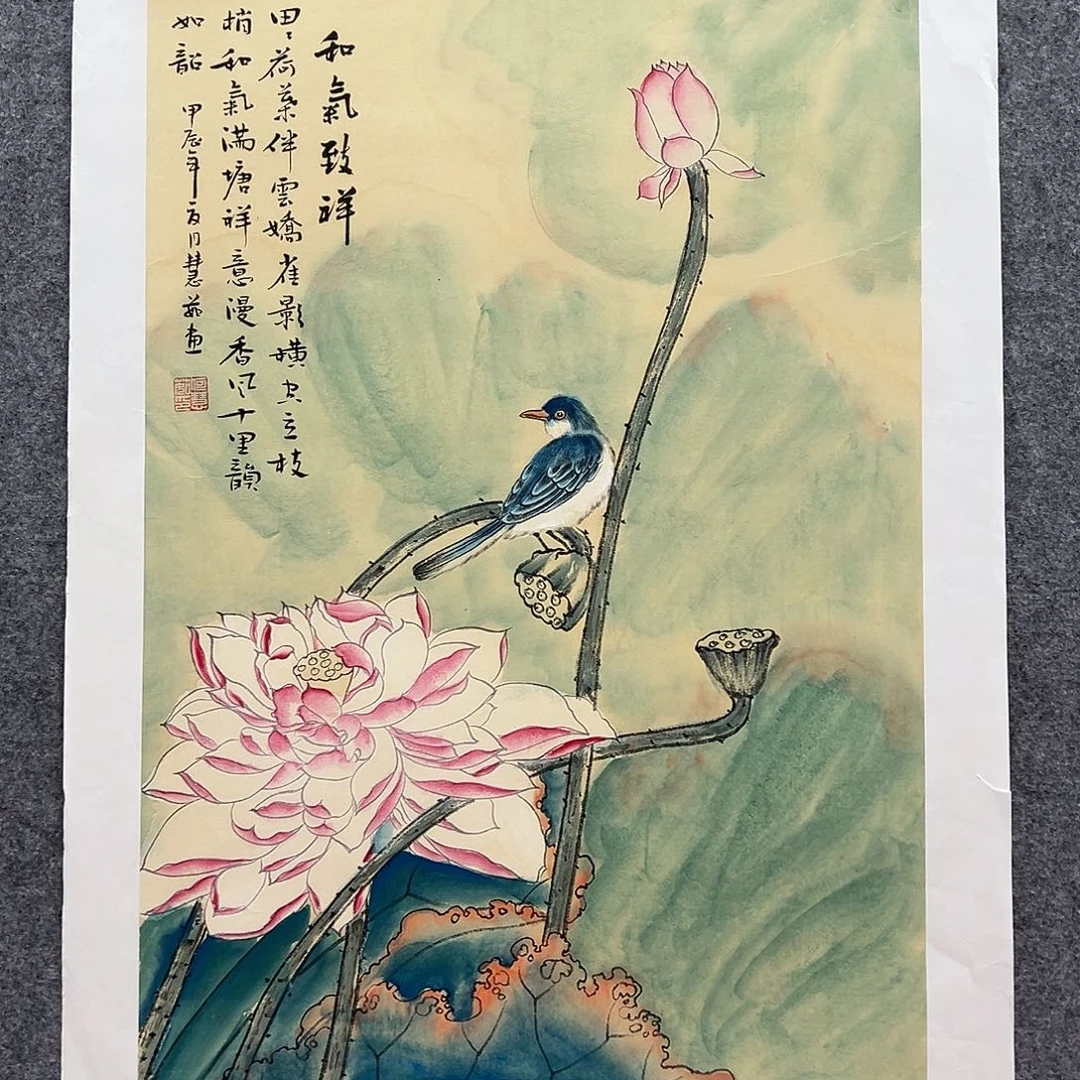 和氣致祥
田〻荷葉伴雲嬌雀影橫空立枝
梢和氣满塘祥意漫香风十里韻
如韶 甲辰年月慧画